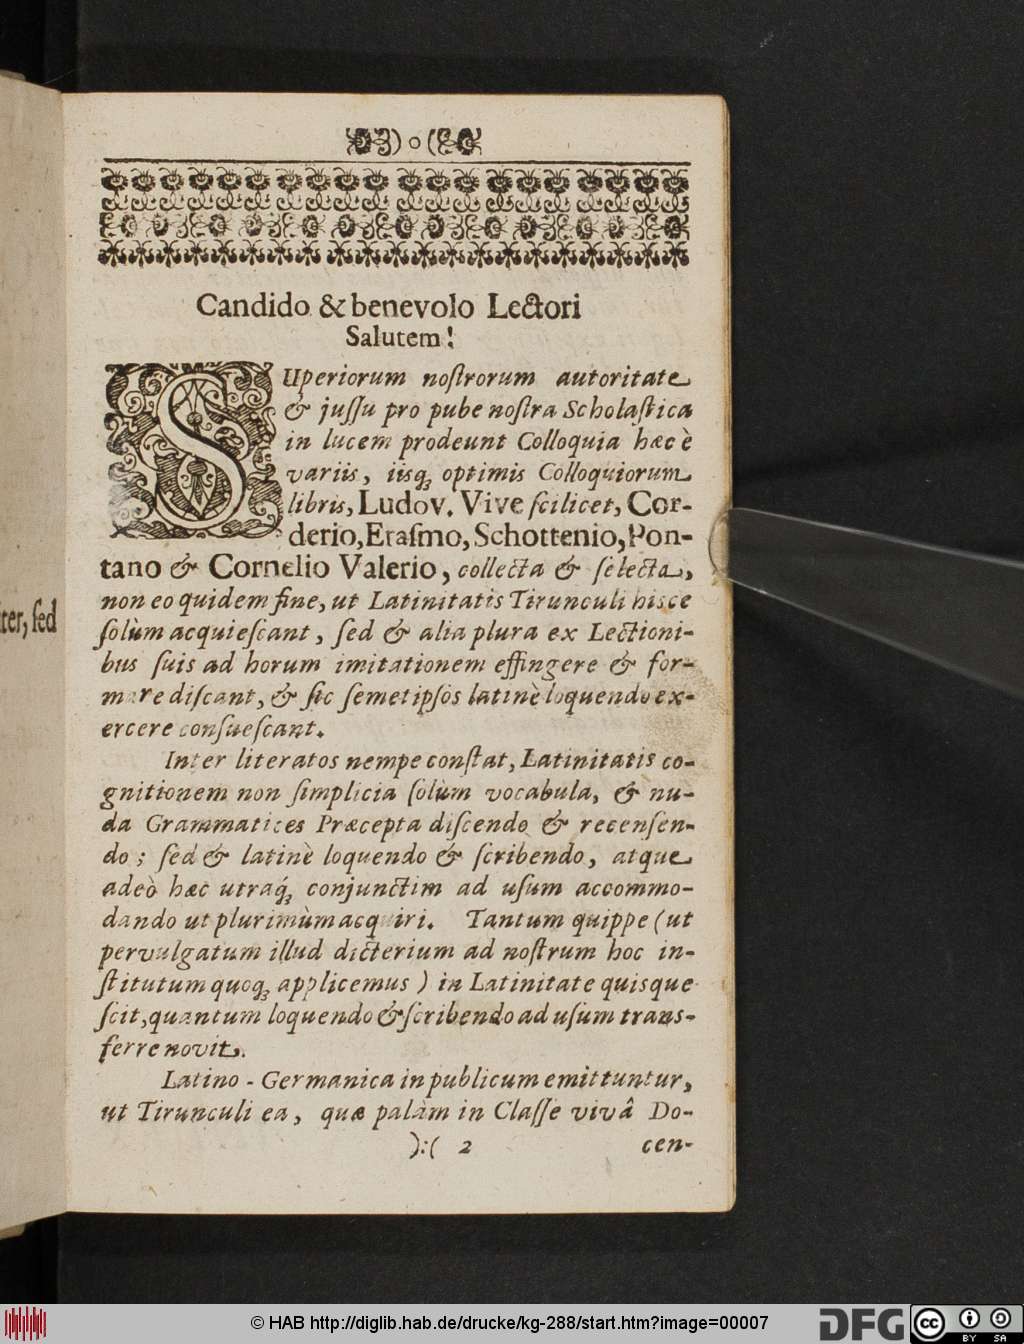 )o(
Candido & benevolo Lectori
Salutem!
SUperiorum noſtrorum autoritate
& juſſu pro pube noſtra Scholaſtica
in lucem prodeunt Colloquia hæc è
variis, iisq; optimis Colloquiorum
libris, Ludov. Vive ſcilicet, Cor-
derio, Eraſmo, Schottenio, Pon-
tano & Cornelio Valerio, collecta & ſelecta,
non eo quidem fine, ut Latinitatis Tirunculi hisce
ſolùm acquieſcant, ſed & alia plura ex Lectioni-
bus ſuis ad horum imitationem effingere & for-
mare diſcant, & ſic ſemetipſos latinè loquendo ex-
ercere conſueſcant.
Inter literatos nempe conſtat, Latinitatis co-
gnitionem non ſimplicia ſolùm vocabula, & nu-
da Grammatices Præcepta diſcendo & recenſen-
do; ſed & latinè loquendo & ſcribendo, atque
adeò hæc utraq́; conjunctim ad uſum accommo-
dando ut plurimùm acquiri. Tantum quippe (ut
pervulgatum illud dicterium ad noſtrum hoc in-
ſtitutum quoq; applicemus) in Latinitate quisque
ſcit, quantum loquendo & ſcribendo ad uſum trans-
ferre novit.
Latino-Germanica in publicum emittuntur,
ut Tirunculi ea, quæ palàm in Claſſe vivâ Do-
):( 2 cen-
iter, ſed
© HAB http://diglib.hab.de/drucke/kg-288/start.htm?image=00007
DFG
cc BY SA